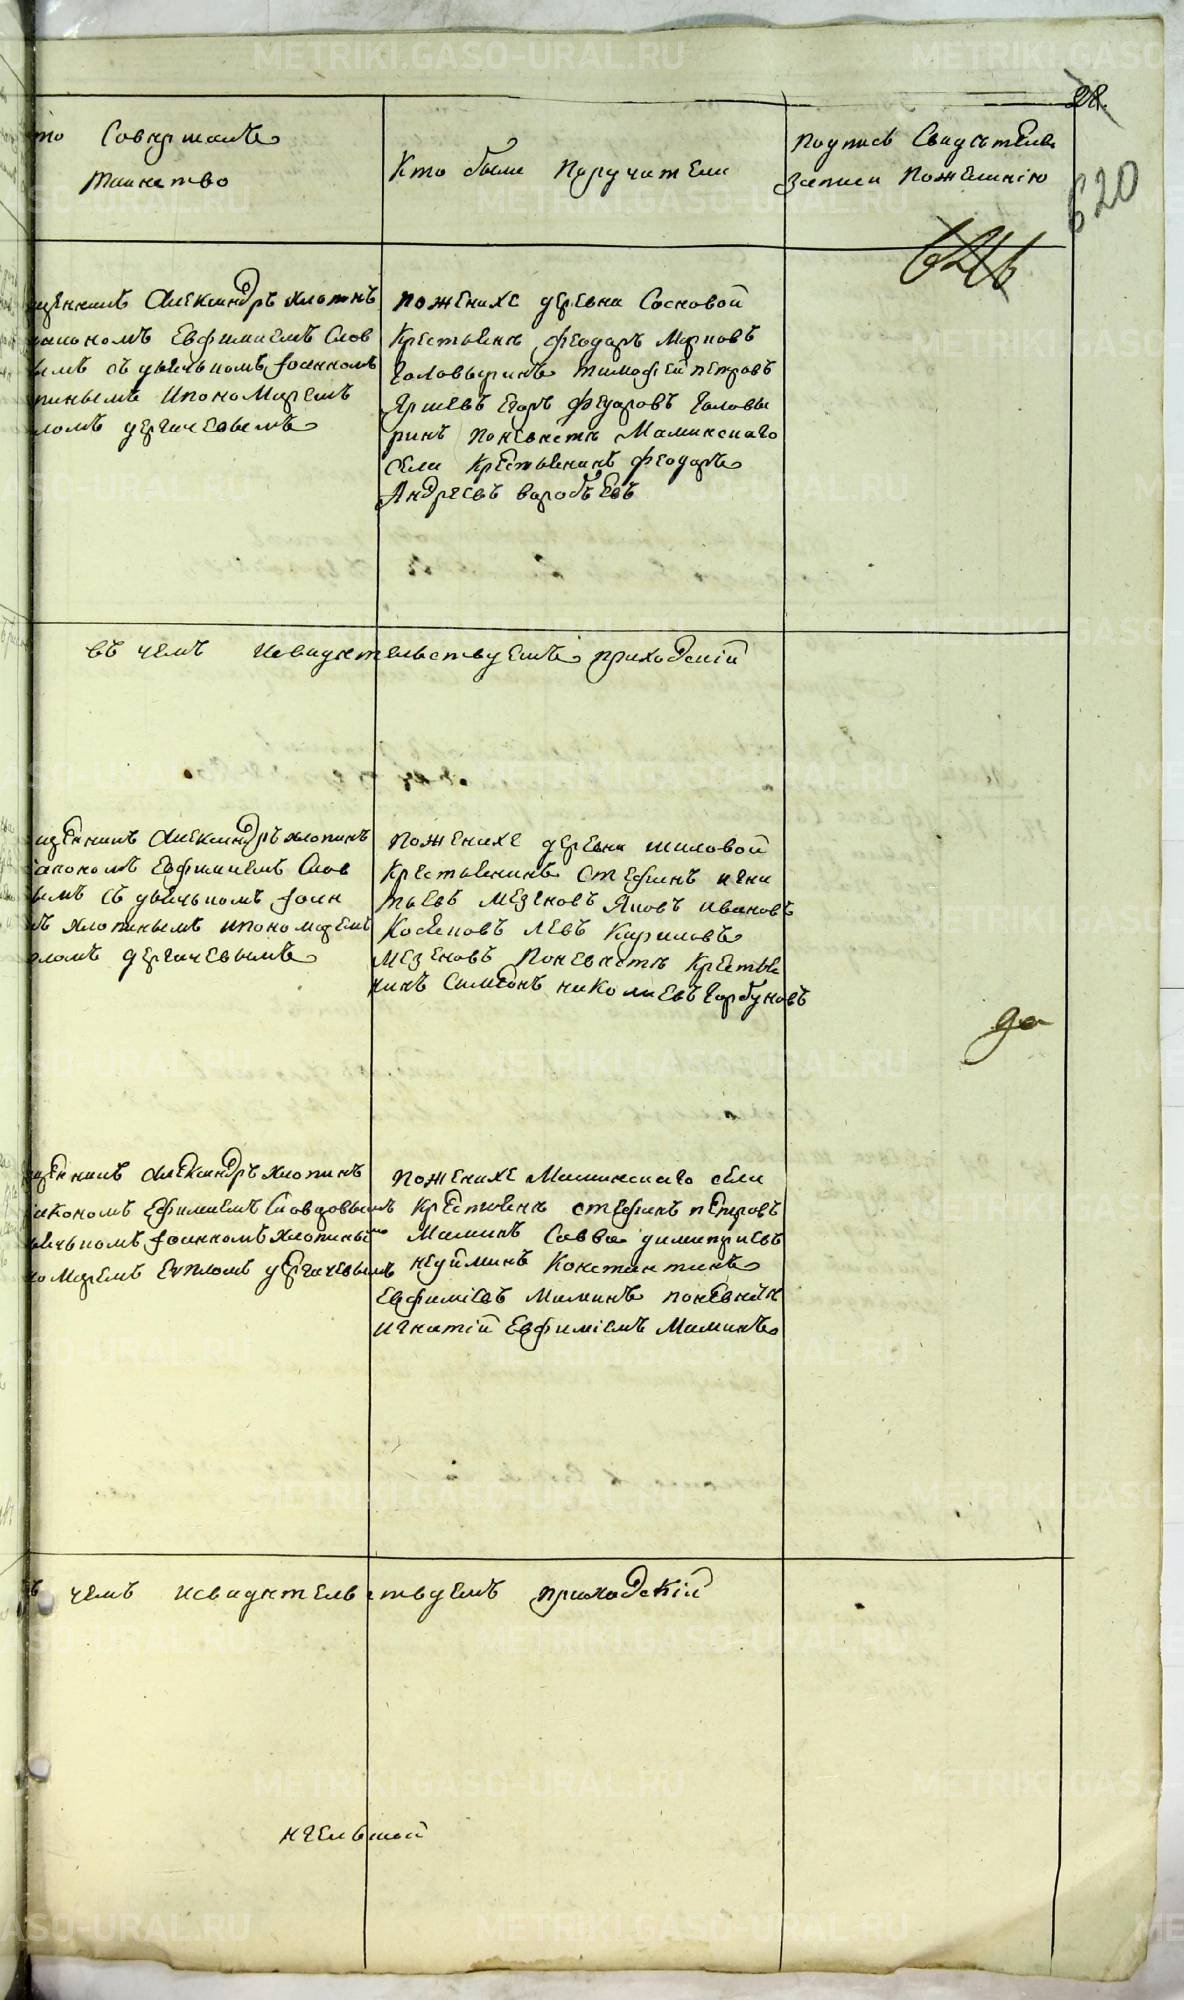 28.
620
то Совершалъ
Таинство
Кто были Поручители
Подпись Свидетелей
Записи Пожеланію
щенникъ Александръ хлопинъ
иакономъ Евфимиемъ Слов
ымъ съ дьячьномъ Іоанномъ
пинымъ Ипономаремъ
ломъ дергачевымъ
поженихе деревни Сосновой
Крестьяне феодоръ Марковъ
Головыринъ тимофей петровъ
Яршевъ Егоръ феодоровъ Головы
ринъ поневесте Маминскаго
села Крестьянинъ феодоръ
Андреевъ варобъевъ
въ чемъ исвидетельствуемъ приходскій
щенникъ Александръ хлопинъ
иакономъ Евфимиемъ Слов
ымъ съ дьячьномъ Іоан
ъ хлопинымъ ипономаремъ
пломъ дергачевымъ
поженихе деревни шиловой
Крестьянинъ Стефанъ игна
тьевъ мезеновъ Яковъ ивановъ
Косяковъ левъ Кириловъ
мезеновъ Поневесте Крестья
нинъ Симеонъ николаевъ Горбуновъ
да
щенникъ Александръ хлопинъ
иакономъ Ефимиемъ Словцовымъ
ьячьномъ Іоанномъ хлопины
номаремъ Еѵпломъ дергачевымъ
поженихе Маминскаго села
Крестьяне стефанъ петровъ
Маминъ Савва димитриевъ
неуйминъ Константинъ
Евфиміевъ Маминъ поневесте
игнатій Евфиміевъ Маминъ
ъ чемъ исвидетельствуемъ приходскій
METRIKI.GASO-URAL.RU